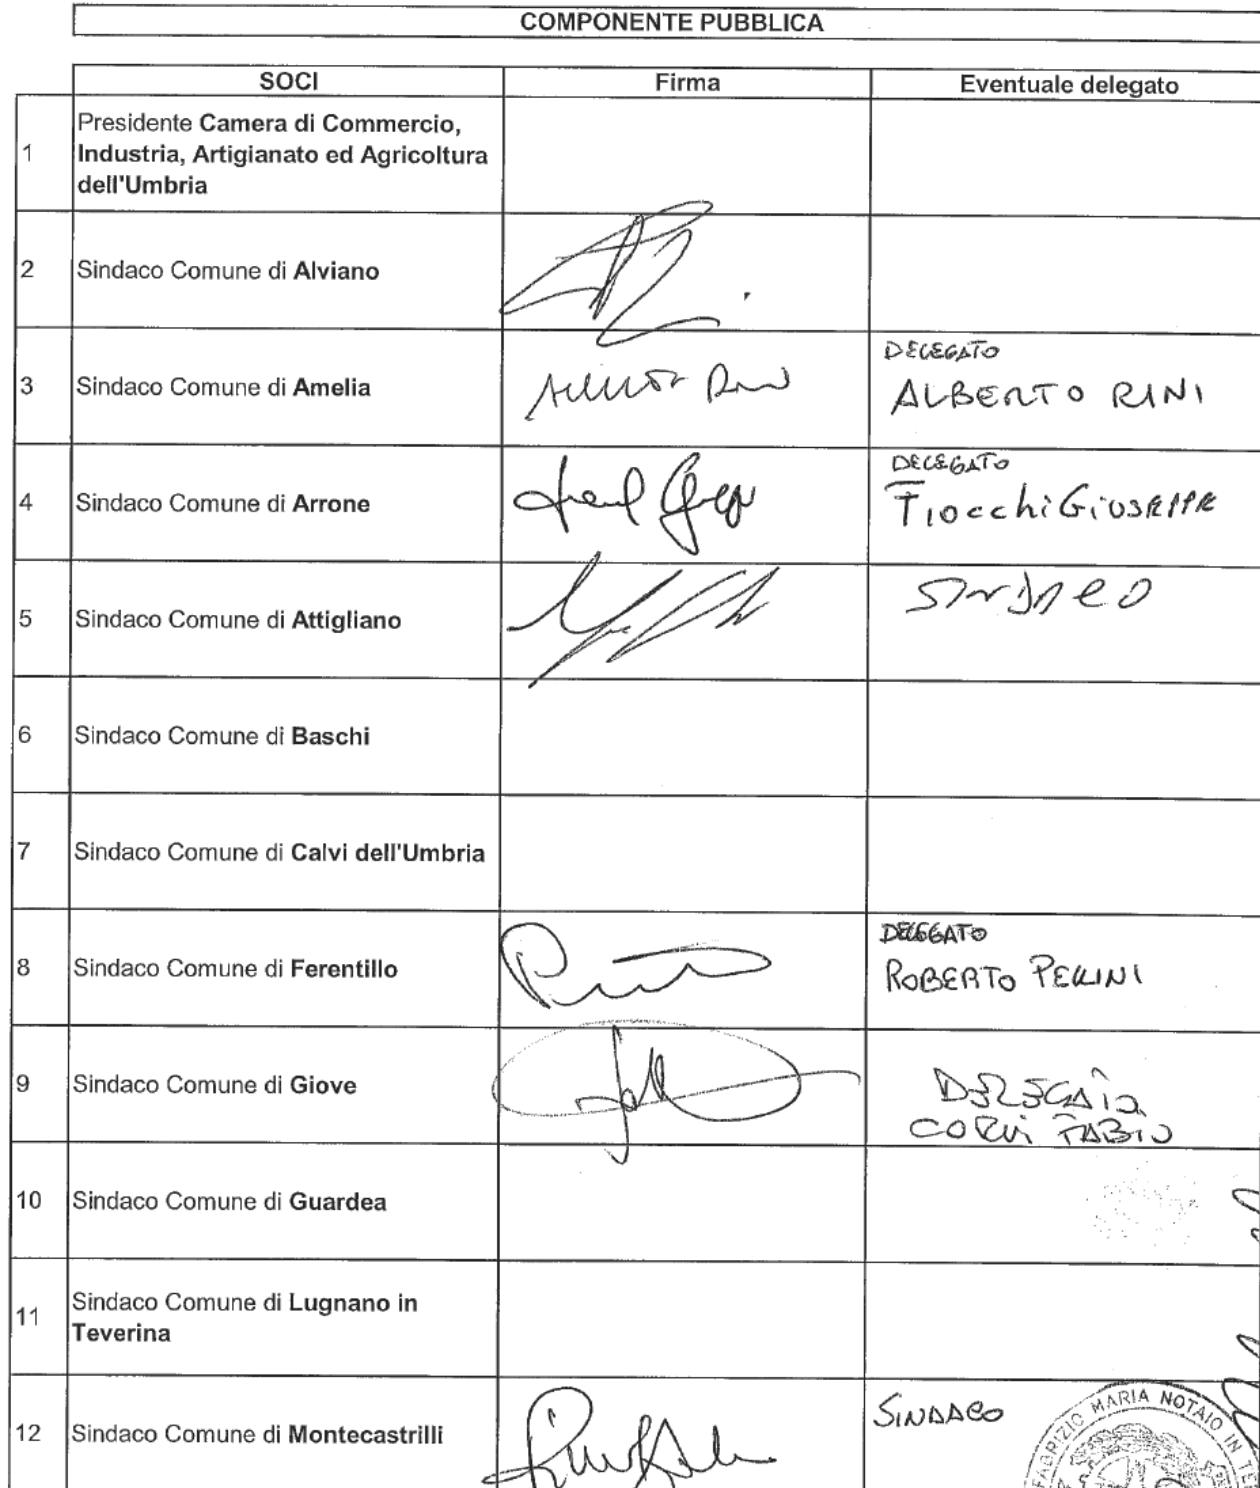 COMPONENTE PUBBLICA
SOCI Firma Eventuale delegato
1 Presidente Camera di Commercio,
Industria, Artigianato ed Agricoltura
dell'Umbria
2 Sindaco Comune di Alviano
DELEGATO
3 Sindaco Comune di Amelia ALBERTO RINI
DELEGATO
4 Sindaco Comune di Arrone Fiocchi Giuseppe
5 Sindaco Comune di Attigliano SINDACO
6 Sindaco Comune di Baschi
7 Sindaco Comune di Calvi dell'Umbria
DELEGATO
8 Sindaco Comune di Ferentillo ROBERTO
9 Sindaco Comune di Giove DELEGATO
FABIO
10 Sindaco Comune di Guardea
11 Sindaco Comune di Lugnano in
Teverina
12 Sindaco Comune di Montecastrilli SINDACO
FABRIZIO MARIA NOTAIO IN